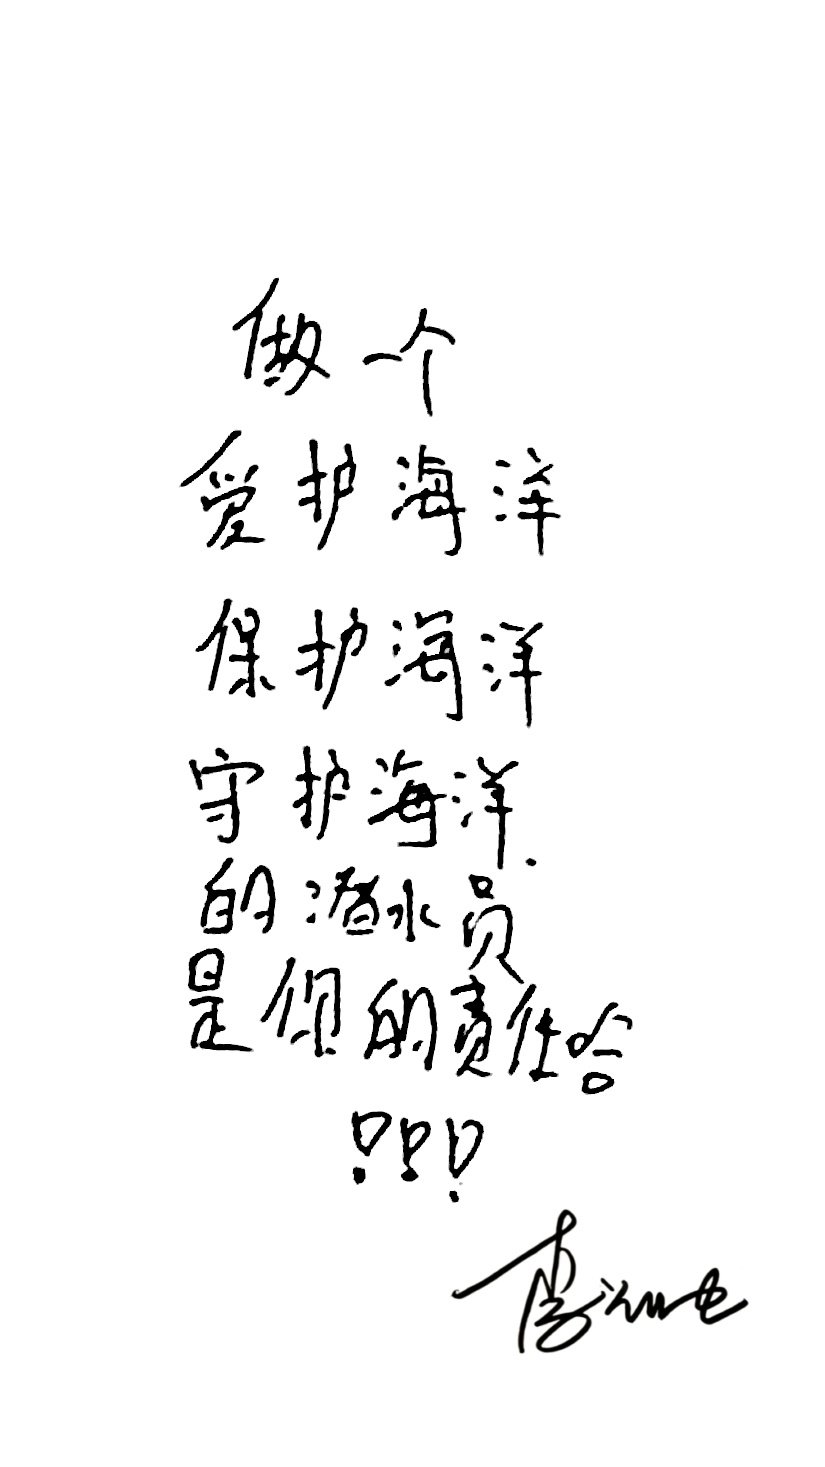 做一个
爱护海洋
保护海洋
守护海洋.
的潜水员
是你的责任哈
!!!
李